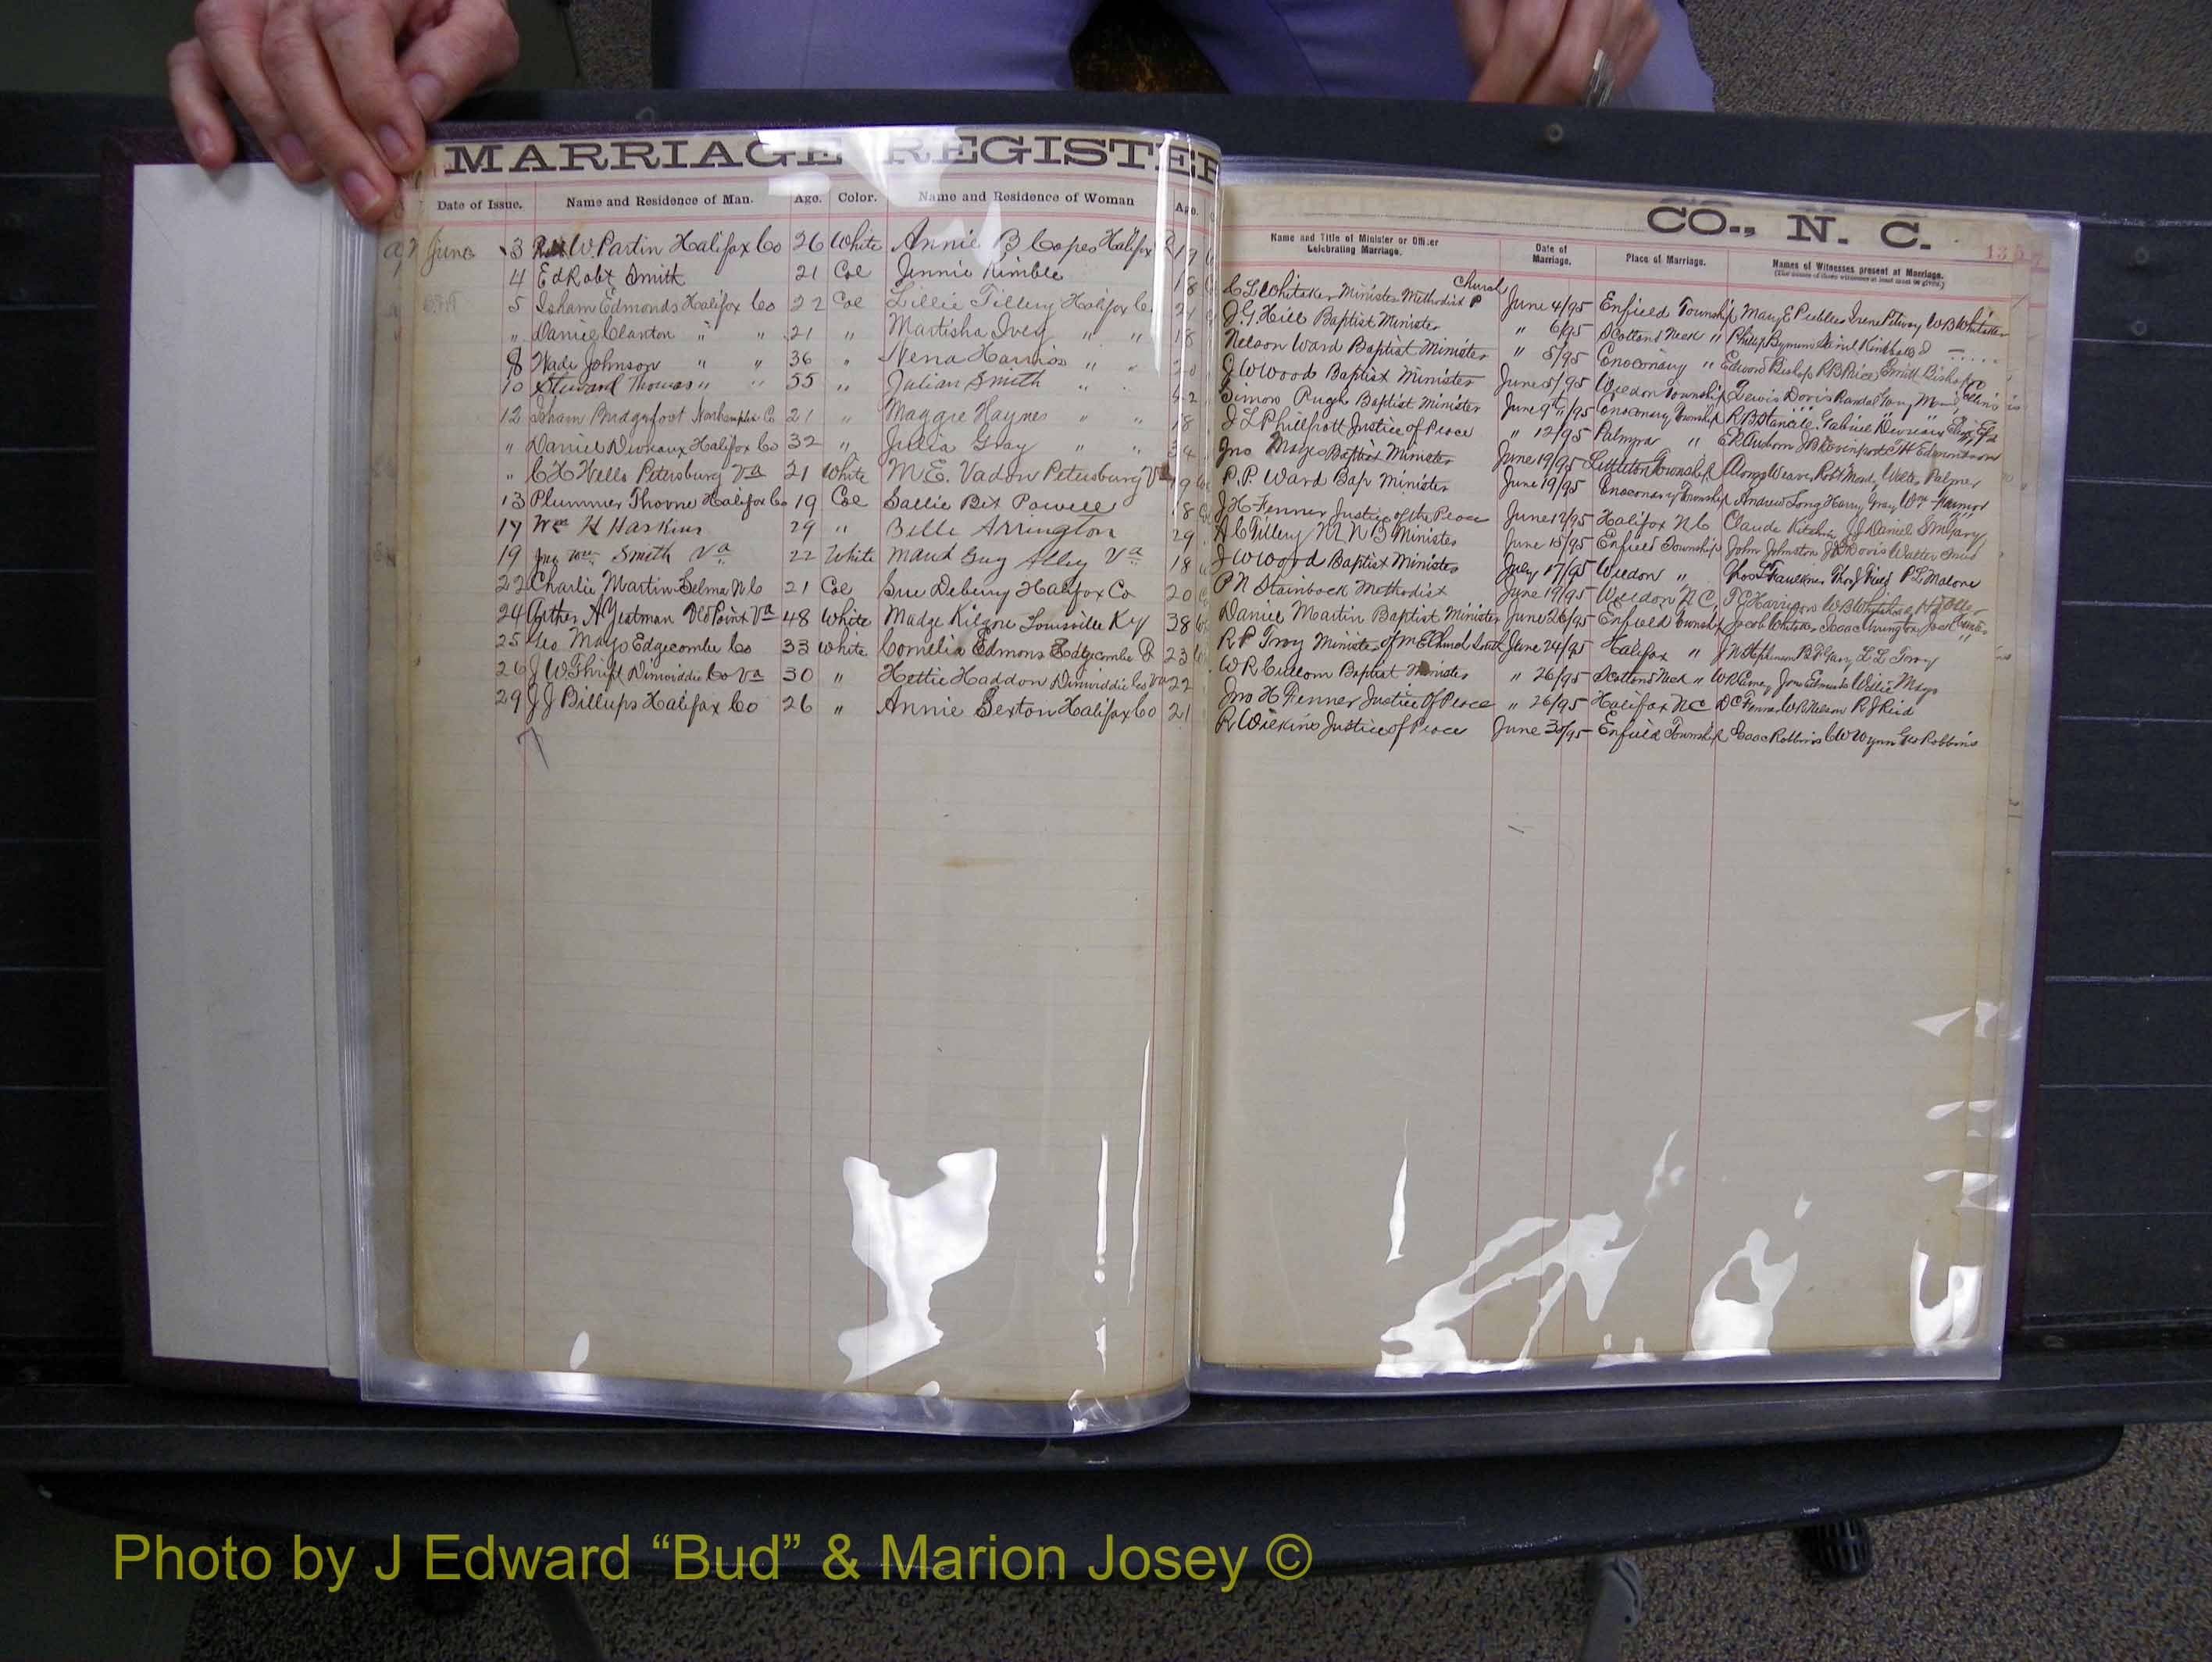 MARRIAGE REGISTER
Date of Issue. Name and Residence of Man. Age. Color. Name and Residence of Woman Age.
June 3 W Partin Halifax Co 26 White Annie B Copes Halifax 19
4 Ed Robt Smith 21 Col Jennie Kimble 18
5 Isham Edmonds Halifax Co 22 Col Lillie Tillery Halifax Co 21
" Daniel Clanton " " 21 " Martisha Ivey " " 18
8 Wade Johnson " " 36 " Nena Harriss " "
10 Steward Thomas " " 55 " Julian Smith " " 42
12 Isham Bridgefoot Northampton Co 21 " Maggie Haynes " " 18
" Daniel Devreaux Halifax Co 32 " Julia Gray " " 34
" C H Wells Petersburg Va 21 White M.E. Vadon Petersburg Va 19
13 Plummer Thorne Halifax Co 19 Col Sallie Bet Powell 18
17 Wm H Haskins 29 " Belle Arrington 29
19 Jno Wm Smith Va 22 White Maud Guy Alley Va 18
22 Charlie Martin Selma N.C 21 Col Sue Deberry Halifax Co 20
24 Arther A Yeatman Old Point Va 48 White Madge Kilgore Louisville Ky 38
25 Geo Mayo Edgecombe Co 33 White Cornelia Edmons Edgecombe Co 23
26 J W Thrift Dinwiddie Co Va 30 " Hettie Haddon Dinwiddie Co Va 22
29 J J Billups Halifax Co 26 " Annie Sexton Halifax Co 21
CO., N. C.
Name and Title of Minister or Officer Celebrating Marriage. Date of Marriage. Place of Marriage. Names of Witnesses present at Marriage.
(The names of three witnesses at least must be given.)
C L Whitaker Minister Methodist P Church June 4/95 Enfield Township Mary E Peebles Irene Pitway W B Whitaker
J. G. Hill Baptist Minister " 6/95 Scotland Neck "
Nelson Ward Baptist Minister " 5/95 Conoconary " Edward Bishop R B Price Bishop
J W Wood Baptist Minister June 5/95 Weldon Township Lewis Davis Randal Gary
Simon Pugh Baptist Minister June 9th/95 Conoconary Township
J L Phillpott Justice of Peace " 12/95 Palmyra "
Jno Mayo Baptist Minister June 19/95 Littleton Township Alonzo Weaver Robt Mosely Walter Palmer
P. P. Ward Bap Minister June 19/95 Conoconary Township Andrew Long Harry Gray Wm
J H Fenner Justice of the Peace June 12/95 Halifax N C Claude Kitchin J J Daniel S M Gary
A C Tillery Minister June 15/95 Enfield Township John Johnston Davis Walter
J W Wood Baptist Minister July 17/95 Weldon " Thos L Faulkner P L Malone
P N Stainback Methodist June 19/95 Weldon N C.
Daniel Martin Baptist Minister June 26/95 Enfield Township Jacob Whitaker Isaac Arrington
R P Troy Minister of M E Church South June 24/95 Halifax " B F Gary L L Troy
W R Cullom Baptist Minister " 26/95 Scotland Neck " Willie Mayo
Jno H Fenner Justice Of Peace " 26/95 Halifax NC D C Fenner W R Nelson R J Reid
R Wilkins Justice of Peace June 30/95 Enfield Township Isaac Robbins C W Wynn Geo Robbins
Photo by J Edward “Bud” & Marion Josey ©